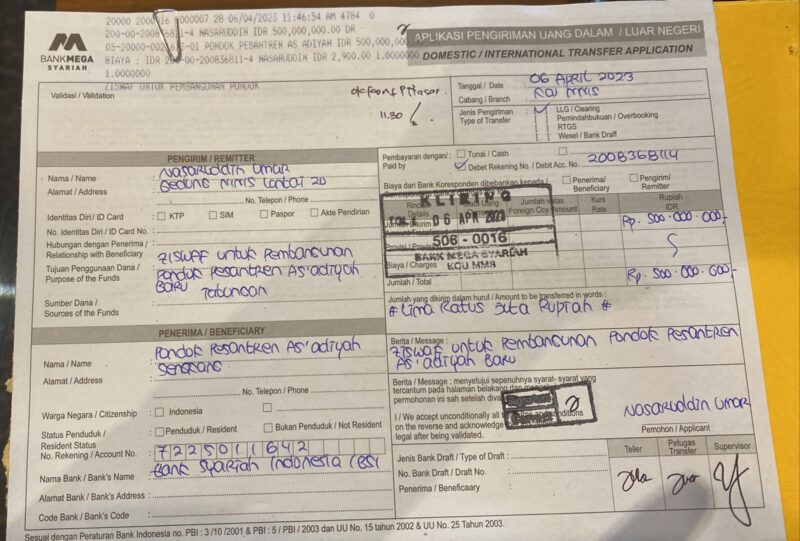 20000 200016 000007 28 06/04/2023 11:46:54 AM 4784 0
200-00-200836811-4 NASARUDDIN IDR 500,000,000.00 DR
PONDOK PESANTREN AS ADIYAH IDR 500,000,
BIAYA : IDR 200-00-200836811-4 NASARUDDIN IDR 2,900.00 1.0000000
1.0000000
ZISWAF UNTUK PEMBANGUNAN PONDOK
BANKMEGA
SYARIAH
APLIKASI PENGIRIMAN UANG DALAM / LUAR NEGERI
DOMESTIC / INTERNATIONAL TRANSFER APPLICATION
Validasi / Validation
11.30
Tanggal / Date : 06 APRIL 2023
Cabang / Branch :
Jenis Pengiriman
Type of Transfer
LLG / Clearing
Pemindahbukuan / Overbooking
RTGS
Wesel / Bank Draft
PENGIRIM / REMITTER
Nama / Name : Nasaruddin Umar
Alamat / Address : Gedung Mimis Lantai 20
No. Telepon / Phone
Identitas Diri / ID Card : KTP SIM Paspor Akte Pendirian
No. Identitas Diri / ID Card No. :
Hubungan dengan Penerima /
Relationship with Beneficiary
Tujuan Penggunaan Dana /
Purpose of the Funds
ZISWAF untuk Pembangunan
Pondok Pesantren As'adiyah
Baru
Sumber Dana /
Sources of the Funds
Tabungan
Pembayaran dengan /
Paid by
Tunai / Cash
Debet Rekening No. / Debit Acc. No. 2008368114
Biaya dari Bank Koresponden dibebankan kepada /
Penerima/
Beneficiary
Pengirim/
Remitter
Details
Jumlah Valas
Foreign Ccy. Amount
Kurs
Rate
Rupiah
IDR
Rp. 500.000.000,-
Biaya / Charges
Jumlah / Total
Rp. 500.000.000,-
KLIRING
06 APR 2023
506 - 0016
BANK MEGA SYARIAH
Jumlah yang dikirim dalam huruf / Amount to be transferred in words :
# Lima Ratus Juta Rupiah #
Berita / Message :
ZISWAF untuk Pembangunan Pondok Pesantren
As'adiyah Baru
PENERIMA / BENEFICIARY
Nama / Name : Pondok Pesantren As'adiyah
Sengkang
Alamat / Address :
No. Telepon / Phone
Warga Negara / Citizenship : Indonesia
Status Penduduk /
Resident Status
Penduduk / Resident
Bukan Penduduk / Not Resident
No. Rekening / Account No. : 7225011642
Nama Bank / Bank's Name : Bank Syariah Indonesia (BSI)
Alamat Bank / Bank's Address :
Code Bank / Bank's Code :
Berita / Message : menyetujui sepenuhnya syarat- syarat yang
tercantum pada halaman belakang dan
permohonan ini sah setelah
I / We accept unconditionally all conditions
on the reverse and acknowledge
legal after being validated.
Nasaruddin Umar
Pemohon / Applicant
Jenis Bank Draft / Type of Draft :
No. Bank Draft / Draft No. :
Penerima / Beneficaary :
Teller
Petugas
Transfer
Supervisor
Sesuai dengan Peraturan Bank Indonesia no. PBI : 3 /10 /2001 & PBI : 5 / PBI / 2003 dan UU No. 15 tahun 2002 & UU No. 25 Tahun 2003.